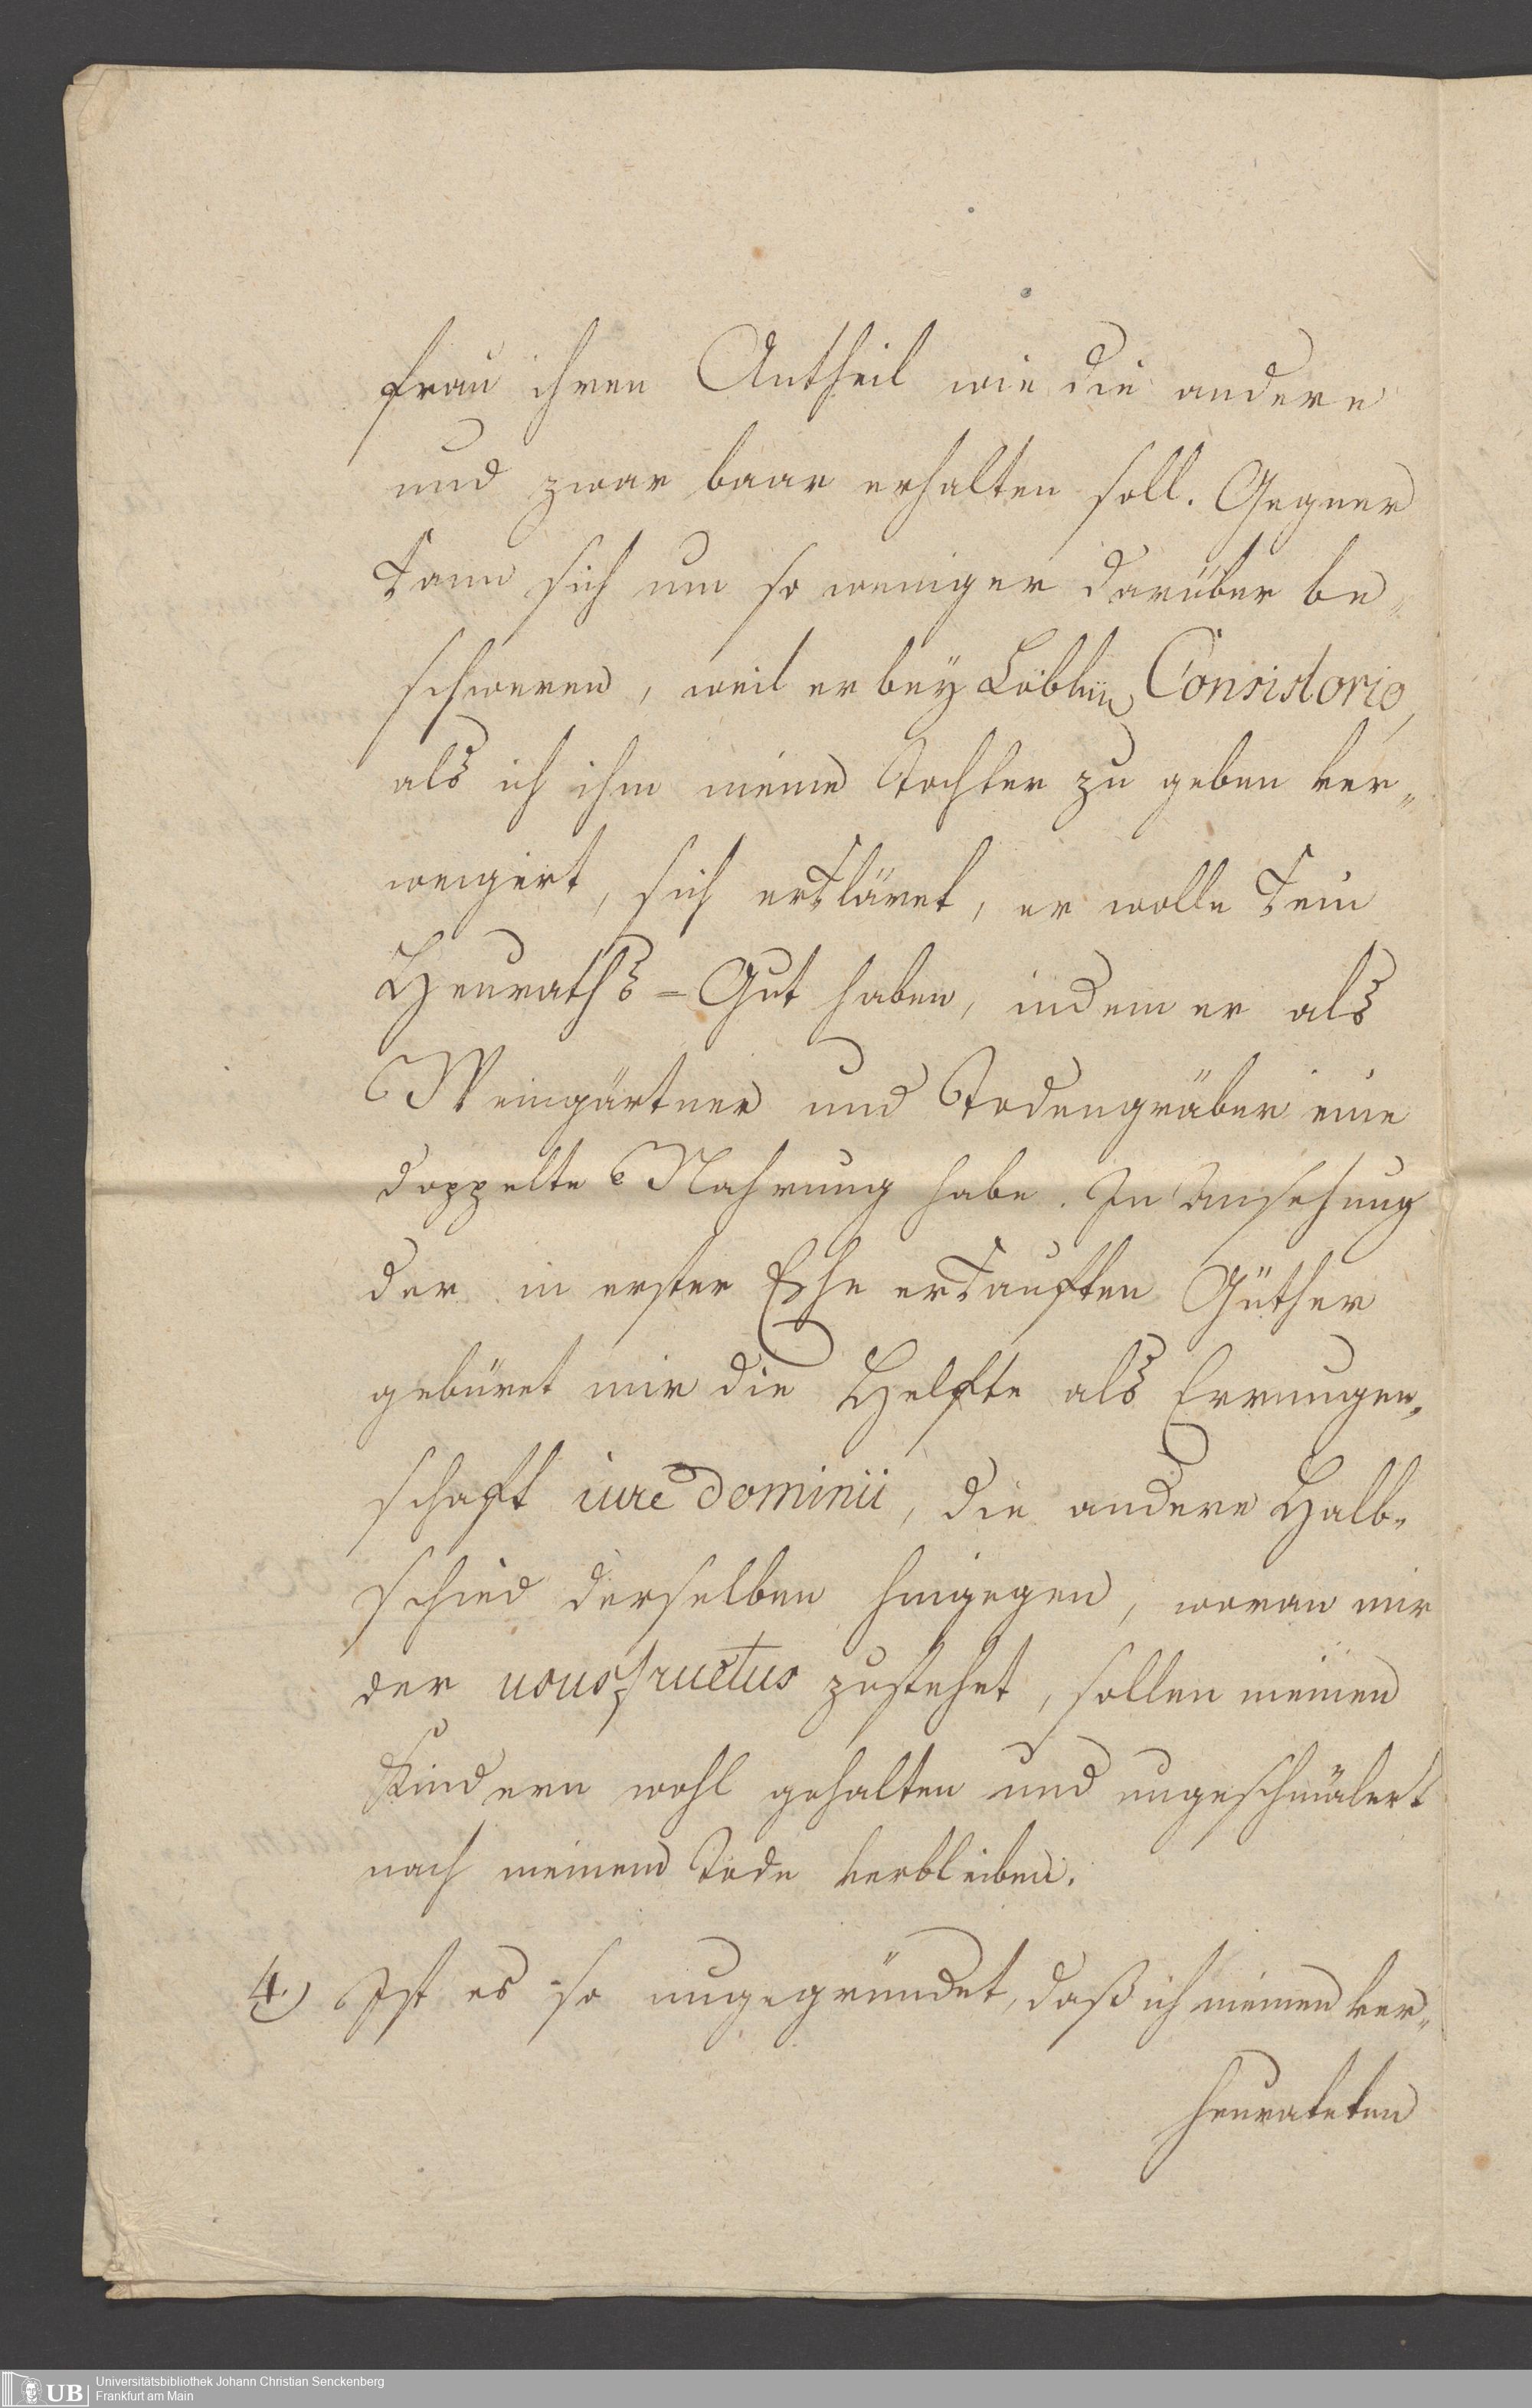 frau ihren Antheil wie die andere
und zwar baar erhalten soll. Gegner
kann sich um so weniger darüber be„
schweren, weil er bey Löblm Consistorio,
als ich ihm meine Tochter zu geben ver„
weigert, sich erkläret, er wolle kein
Heuraths=Gut haben, indem er als
Weingärtner und Todengräber eine
doppelte Nahrung habe. In Ansehung
der in erster Ehe erkauften Güther
gebüret mir die Helfte als Errungen„
schaft iure dominii, die andere Halb„
schied derselben hingegen, woran mir
der ususfructus zustehet, sollen meinen
Kindern wohl gehalten und ungeschmälert
nach meinem Tode verbleiben.
4.) Ist es so ungegründet, daß ich meinen ver„
heurateten
UB Universitätsbibliothek Johann Christian Senckenberg
Frankfurt am Main